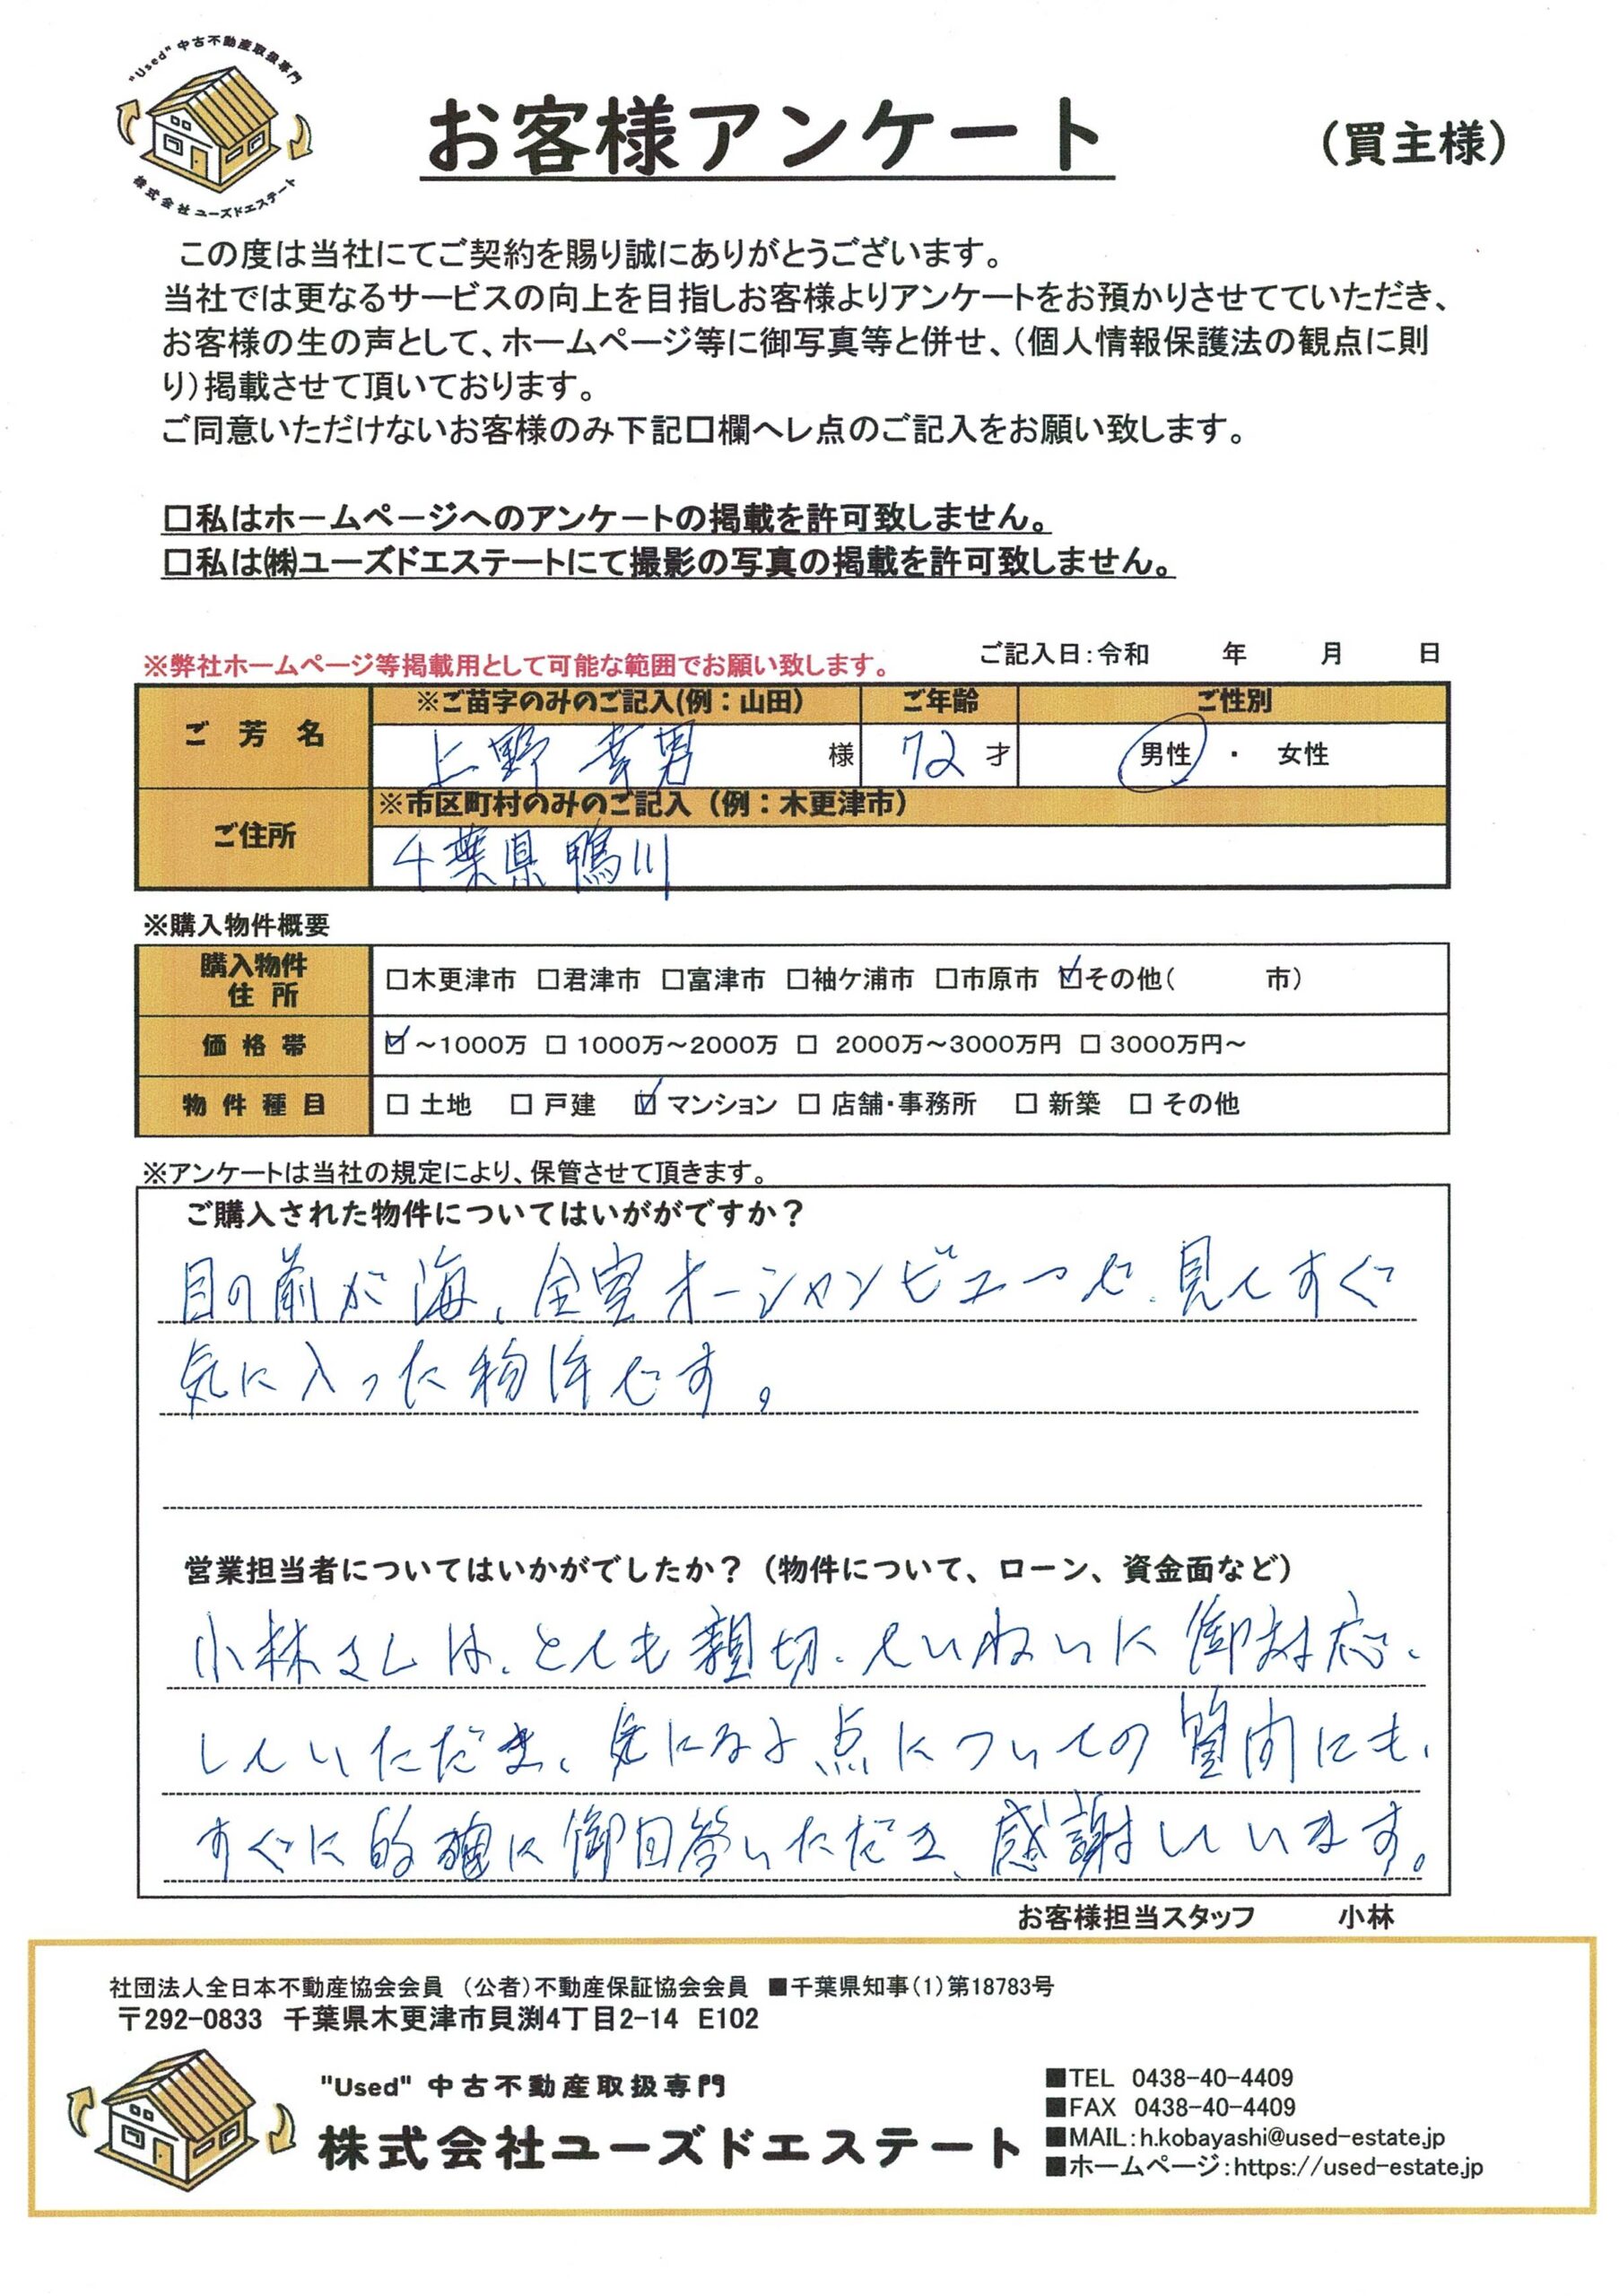 "Used" 中古不動産取扱専門
株式会社ユーズドエステート
お客様アンケート
（買主様）
この度は当社にてご契約を賜り誠にありがとうございます。
当社では更なるサービスの向上を目指しお客様よりアンケートをお預かりさせてていただき、
お客様の生の声として、ホームページ等に御写真等と併せ、（個人情報保護法の観点に則
り）掲載させて頂いております。
ご同意いただけないお客様のみ下記口欄へレ点のご記入をお願い致します。
□私はホームページへのアンケートの掲載を許可致しません。
□私は㈱ユーズドエステートにて撮影の写真の掲載を許可致しません。
※弊社ホームページ等掲載用として可能な範囲でお願い致します。
ご記入日：令和 年 月 日
ご芳名 ※ご苗字のみのご記入(例：山田) ご年齢 ご性別
上野 幸男 様 72 才 男性 ・ 女性
ご住所 ※市区町村のみのご記入（例：木更津市）
千葉県 鴨川
※購入物件概要
購入物件住所 □木更津市 □君津市 □富津市 □袖ケ浦市 □市原市 ☑その他（ 市）
価格帯 ☑～1000万 □ 1000万～2000万 □ 2000万～3000万円 □ 3000万円～
物件種目 □ 土地 □ 戸建 ☑ マンション □ 店舗・事務所 □ 新築 □ その他
※アンケートは当社の規定により、保管させて頂きます。
ご購入された物件についてはいががですか？
目の前が海、全室オーシャンビューで、見てすぐ
気に入った物件です。
営業担当者についてはいかがでしたか？（物件について、ローン、資金面など）
小林さんは、とても親切、ていねいに御対応、
していただき、気になる点についての質問にも、
すぐに的確に御回答いただき、感謝しています。
お客様担当スタッフ 小林
社団法人全日本不動産協会会員 （公者）不動産保証協会会員 ■千葉県知事（1）第18783号
〒292-0833 千葉県木更津市貝渕4丁目2-14 E102
"Used" 中古不動産取扱専門
株式会社ユーズドエステート
■TEL 0438-40-4409
■FAX 0438-40-4409
■MAIL：h.kobayashi@used-estate.jp
■ホームページ：https://used-estate.jp